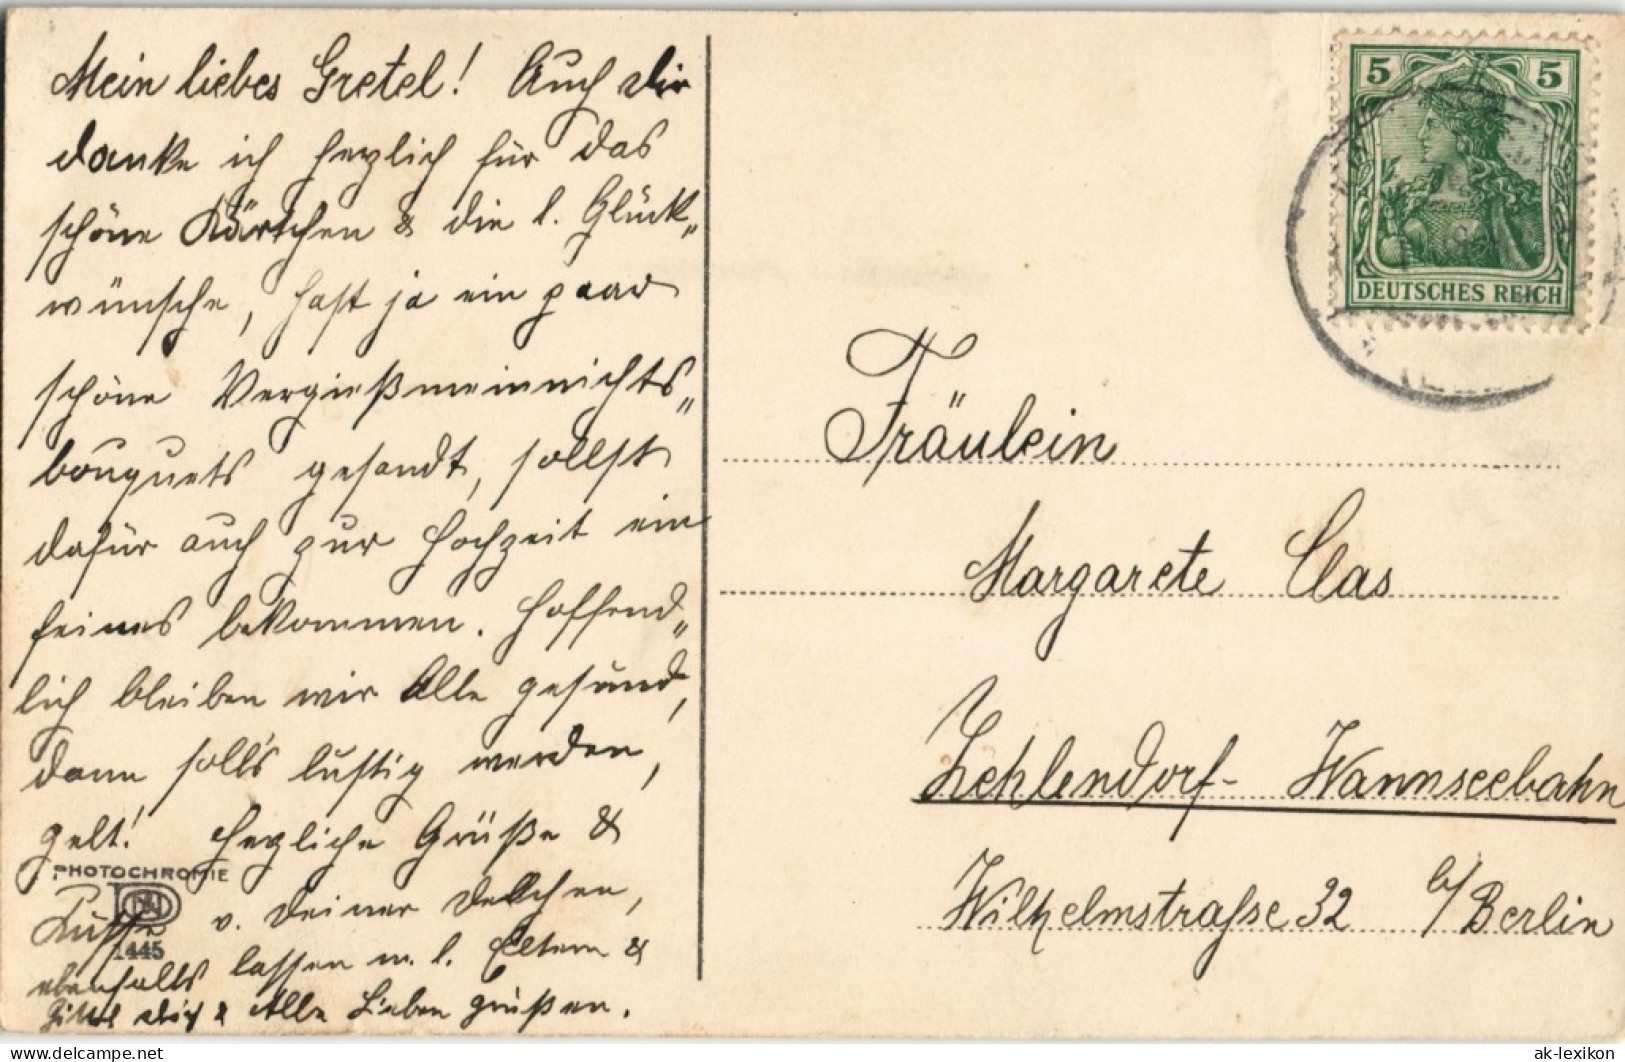 Mein liebes Gretel! Auch dir
danke ich herzlich für das
schöne Kärtchen & die l. Glück„
wünsche, hast ja ein paar
schöne Vergießmeinnichts„
bouquets gesandt, sollst
dafür auch zur Hochzeit ein
feines bekommen. Hoffend„
lich bleiben wir Alle gesund,
dann solls lustig werden,
gelt! Herzliche Grüße &
PHOTOCHROMIE
Küsse v. Deiner Dellchen,
1445
ebenfalls lassen m. l. Eltern &
dich & Alle Lieben grüßen.
5 5
DEUTSCHES REICH
Fräulein
Margarete Clas
Zehlendorf- Wannseebahn
Wilhelmstraße 32 b/ Berlin
https://www.delcampe.net
ak-lexikon